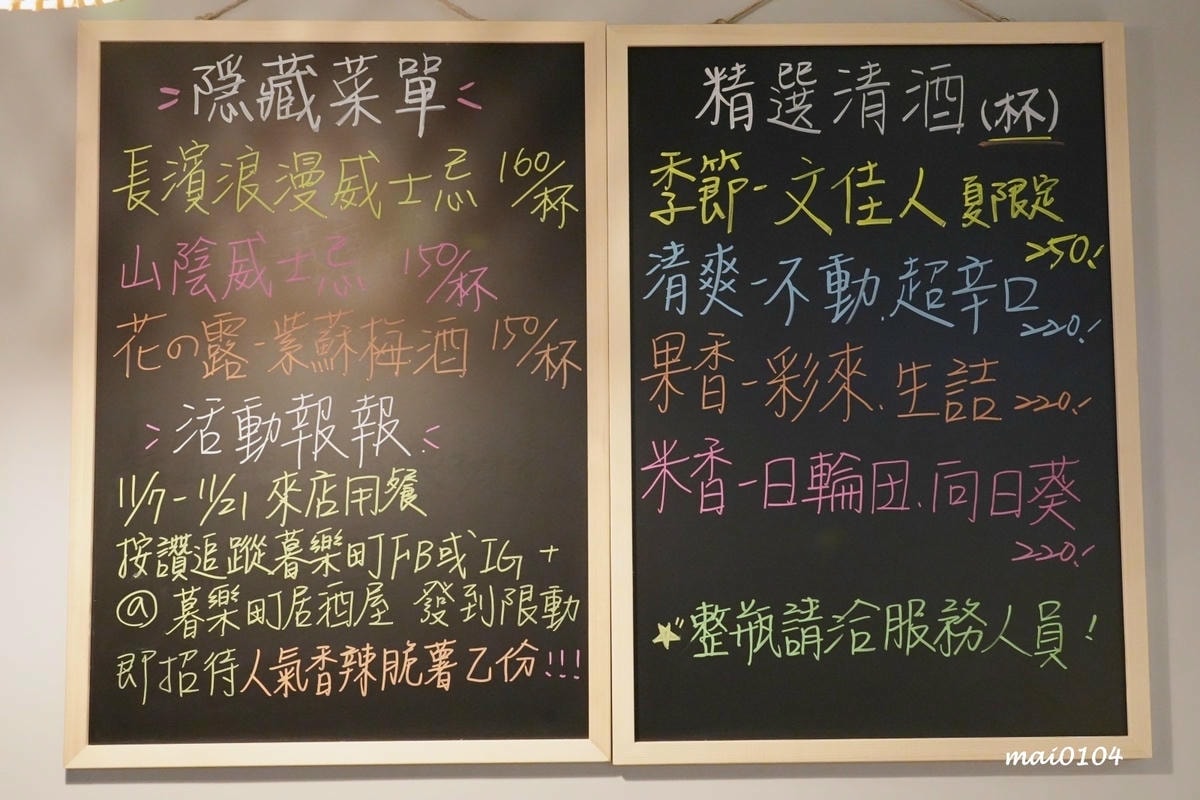 隱藏菜單
長濱浪漫威士忌 160/杯
山陰威士忌 150/杯
花の露-紫蘇梅酒 150/杯
活動報報
11/7-11/21 來店用餐
按讚追蹤暮樂町FB或IG+
@暮樂町居酒屋 發到限動
即招待人氣香辣脆薯乙份!!!
精選清酒(杯)
季節-文佳人 夏限定
250!
清爽-不動.超辛口
220!
果香-彩來.生詰 220!
米香-日輪田.向日葵
220!
整瓶請洽服務人員!
mai0104